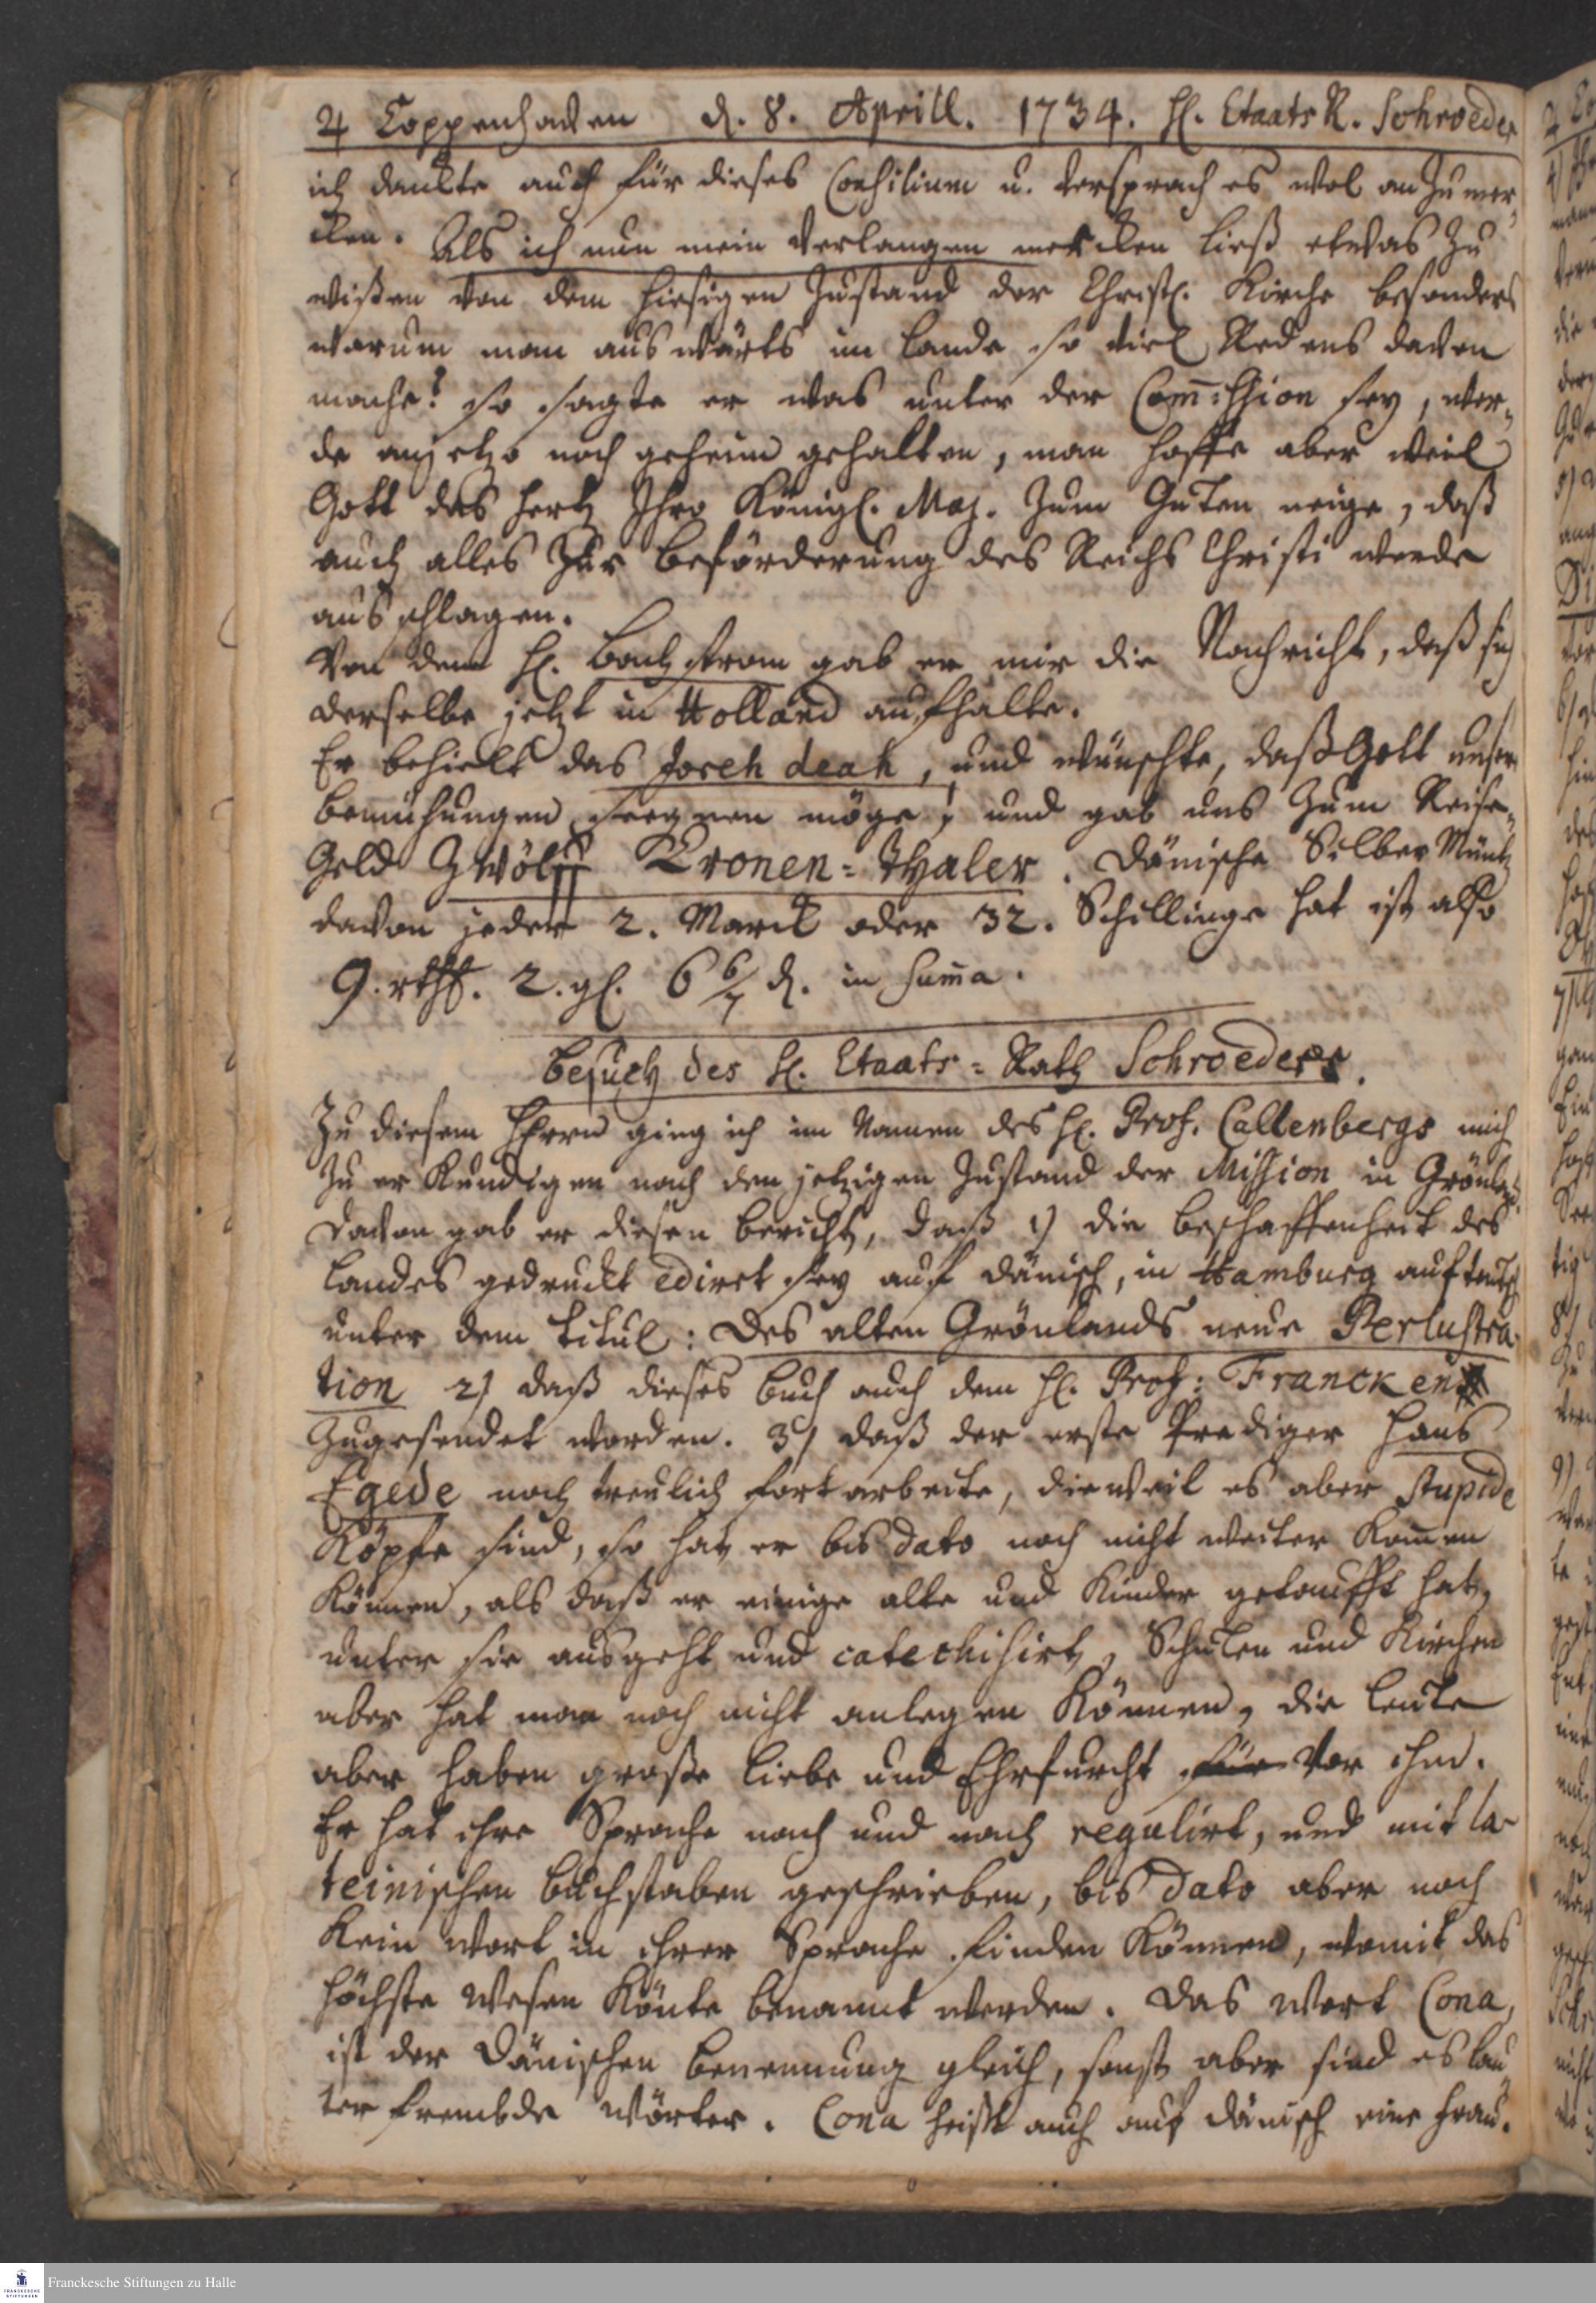 ♃ Coppenhaven d. 8. Aprill. 1734. H. Etaats R. Schroeder
ich danckte auch für dieses Consilium u. versprach es wol an zu mer-
cken. Als ich nun mein Verlangen mercken ließ etwas zu
wißen von dem hiesigen Zustand der Christl. Kirche besonders
warum man auswärts im Lande so viel Redens davon
mache? so sagte er was unter der Com̄ission sey, wer-
de anjetzo noch geheim gehalten, man hoffe aber weil
Gott das Hertz Ihro Königl. Maj. zum Guten neige, daß
auch alles zur Beförderung des Reichs Christi werde
ausschlagen.
Von dem H. Bachstrom gab er mir die Nachricht, daß sich
derselbe jetzt in Holland aufhalte.
Er behielt das Joreh deah, und wünschte, daß Gott unsere
Bemühungen seegnen möge; und gab uns zum Reise-
Geld Zwölff Cronen-Thaler. Dänische Silber Müntz
davon jeder 2. Marck oder 32. Schillinge hat ist also
9. rthl. 2. gl. 6 6/7 d. in Sum̄a.
Besuch des H. Etaats-Rath Schroeders.
Zu diesem Herrn ging ich im Namen des H. Prof. Callenbergs mich
zu erkundigen nach den jetzigen Zustand der Mission in Grönland.
Davon gab er diesen Bericht, daß 1) die Beschaffenheit des
Landes gedruckt ediret sey auf dänisch, in Hamburg auf teutsch
unter dem Titul: Des alten Grönlands neue Perlustra-
tion 2) daß dieses Buch auch dem H. Prof: Francken
zugesendet worden. 3) daß der erste Prediger Hans
Egede noch treulich fortarbeite, dieweil es aber stupide
Köpfe sind, so hat er bis dato noch nicht weiter kom̄en
können, als daß er einige alte und Kinder getaufft hat,
unter sie ausgeht und catechisirt, Schulen und Kirchen
aber hat man noch nicht anlegen können, die Leute
aber haben große Liebe und Ehrfurcht für vor ihm.
Er hat ihre Sprache nach und nach regulirt, und mit la-
teinischen Buchstaben geschrieben, bis dato aber noch
kein Wort in ihrer Sprache finden können, womit das
höchste Wesen könte benamt werden. Das Wort Cona,
ist der Dänischen Benennung gleich, sonst aber sind es lau-
ter frembde Wörter. Cona heißt auch auf dänisch eine Frau.
Franckesche Stiftungen zu Halle